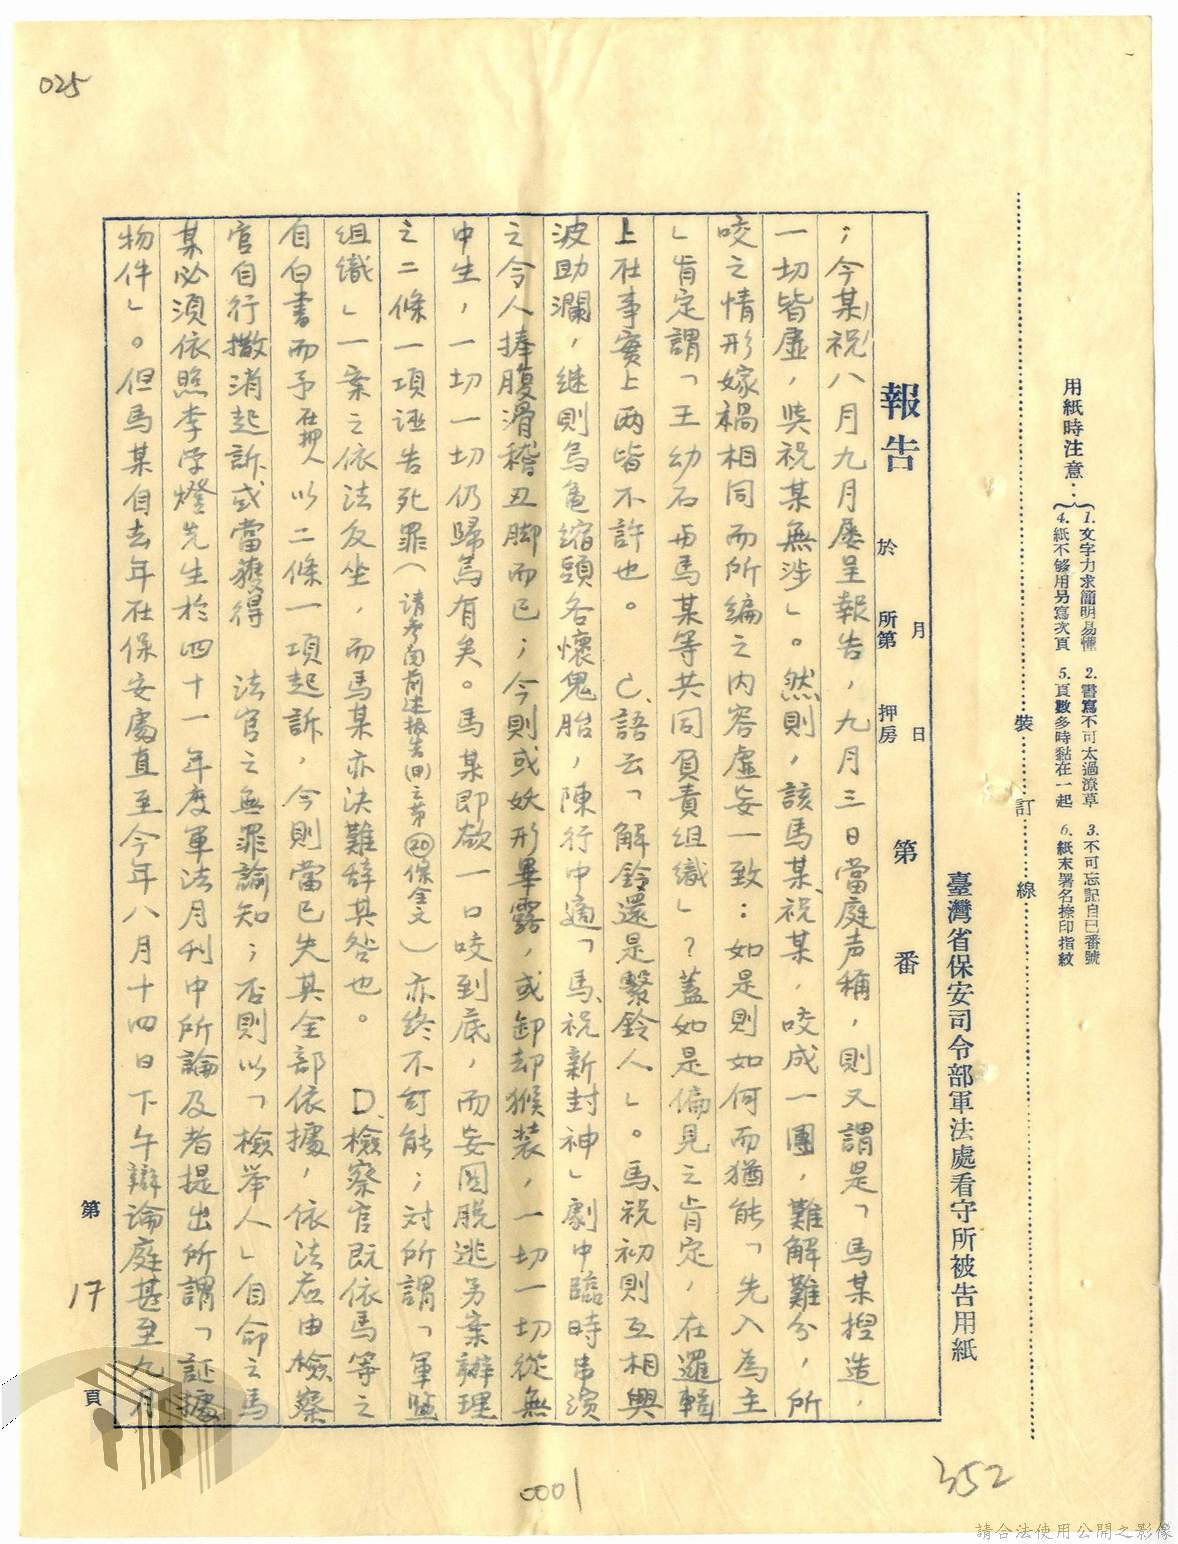 025
用紙時注意：
1.文字力求簡明易懂 2.書寫不可太過潦草 3.不可忘記自己番號
4.紙不够用另寫次頁 5.頁數多時黏在一起 6.紙末署名捺印指紋
裝 訂 線
臺灣省保安司令部軍法處看守所被告用紙
報告 於 月 日 所第 押房 第 番
；今某(祝)八月九月屡呈報告，九月三日當庭声稱，則又謂是「馬某揑造，
一切皆虛，與祝某無涉」。然則，該馬某、祝某，咬成一團，難解難分，所
咬之情形嫁禍相同而所編之内容虛妄一致：如是則如何而猶能「先入為主
」肯定謂「王幼石與馬某等共同負責組織」？蓋如是偏見之肯定，在邏輯
上在事實上両皆不許也。 C、語云「解鈴還是繫鈴人」。馬、祝初則互相興
波助瀾，继則烏龜缩頭各懷鬼胎，陳行中適「馬、祝新封神」劇中臨時串演
之令人捧腹滑稽丑脚而已；今則或妖形畢露，或卸却猴装，一切一切從無
中生，一切一切仍歸烏有矣。馬某即欲一口咬到底，而妄圖脱逃另案辦理
之二條一項誣告死罪（请参閲前述报告(四)之第⑳保全文）亦终不可能；对所謂「軍监
組織」一案之依法反坐，而馬某亦决難辞其咎也。 D、檢察官既依馬等之
自白書而予在押人以二條一項起訴，今則當已失其全部依據，依法应由檢察
官自行撤消起訴，或當獲得 法官之無罪諭知；否則以「檢举人」自命之馬
某必须依照李学燈先生於四十一年度軍法月刊中所論及者提出所謂「証據
物件」。但馬某自去年在保安處直至今年八月十四日下午辯论庭甚至九月
第 17 頁
0001
352
請合法使用公開之影像